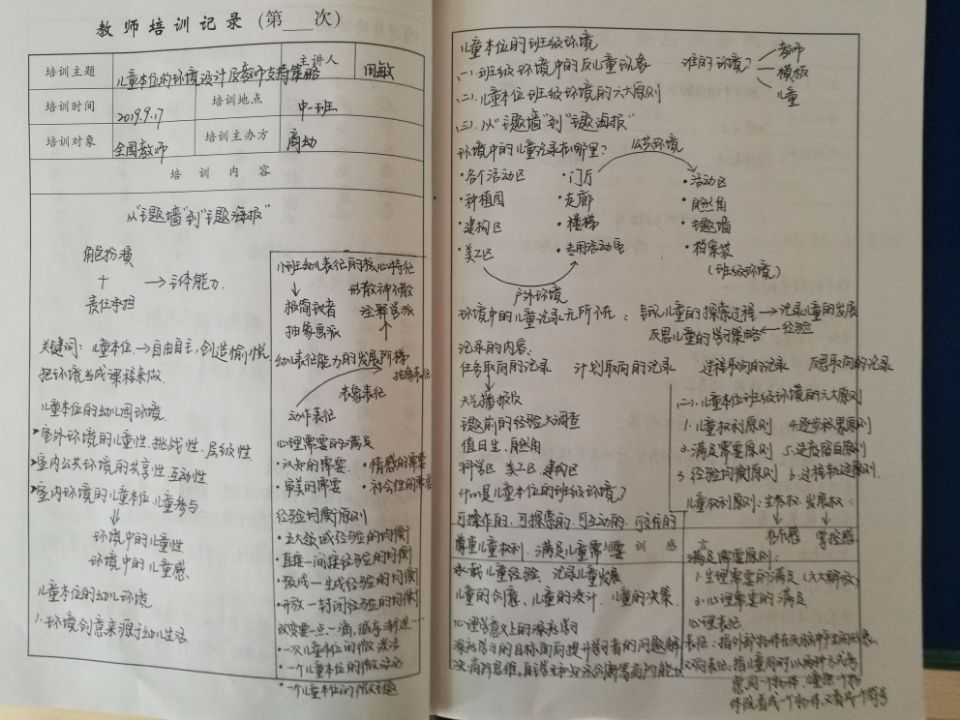 教师培训记录(第 次)
培训主题 儿童本位的环境设计及教师支持策略 主讲人 周敏
培训时间 2019.9.17 培训地点 中一班
培训对象 全园教师 培训主办方 商幼
培训内容
从“主题墙”到“主题海报”
角色扮演
+ → 主体能力
责任承担
关键词: 儿童本位 → 自由自主, 创造愉悦,
把环境当成课程来做.
儿童本位的幼儿园环境.
室外环境的儿童性. 挑战性. 层级性
室内公共环境的共享性 互动性
室内环境的儿童本位, 儿童参与.
环境中的儿童性
环境中的儿童感.
儿童本位的幼儿环境
1.环境创意来源于幼儿生活
小班幼儿表征的核心特征
形散神不散
极简议者 诠释学派
抽象惠派
幼儿表征能力的发展阶梯
抽象表征
表象表征
动作表征
心理需要的满足
·认知的需要 ·情感的需要
·审美的需要 ·社会性的需要
经验均衡原则
·五大领域经验的均衡
·直接一间接经验的均衡
·预成一生成经验的均衡
·开放一封闭经验的均衡
改变要一点一滴, 循序渐进…
·一次儿童本位的微活动
·一个儿童本位的微活动
·一个儿童本位的微主题
儿童本位的班级环境
(一)班级环境中的反儿童现象
谁的环境? 教师
模板
儿童
(二)儿童本位班级环境的六大原则
(三)从“主题墙”到“主题海报”
环境中的儿童记录在哪里? 公共环境
·各个活动区 ·门厅 ·活动区
·种植园 ·走廊 ·自然角
·建构区 ·楼梯 ·主题墙
·美工区 ·专用活动室 ·档案袋
(班级环境)
户外环境
环境中的儿童记录无所不在: 呈现儿童的探索过程 → 记录儿童的发展
反思儿童的学习策略 ← 经验
记录的内容:
任务取向的记录 计划取向的记录 过程取向的记录 反思取向的记录
天气播报员
主题前的经验大调查
值日生、自然角
科学区 美工区 建构区
什么是儿童本位的班级环境?
可操作的. 可探索的. 可互动的. 可没有的
尊重儿童权利. 满足儿童需要 训 感
承载儿童经验. 记录儿童发展
儿童的创意、儿童的设计. 儿童的决策.
心理学意义上的深度学习
深度学习的目标 面向提升学习者的问题解
决. 高阶思维, 自主学习
(二)儿童本位班级环境的六大原则
1.儿童权利原则 4.逐步放累原则
2.满足需要原则 5.适度留白原则
3.经验均衡原则 6.过程轨迹原则
儿童权利原则: 生存权. 发展权
存在感 掌控感
满足需要原则:
1.生理需要的满足(六大解放)
2.心理需要的满足
心理表征
表征: 指外部物体在头脑中呈现的形式.
双重表征: 指儿童同时以两种方式考
虑同一个物体. 儿童把一个物
体既看成一个物体, 又看成一个符号